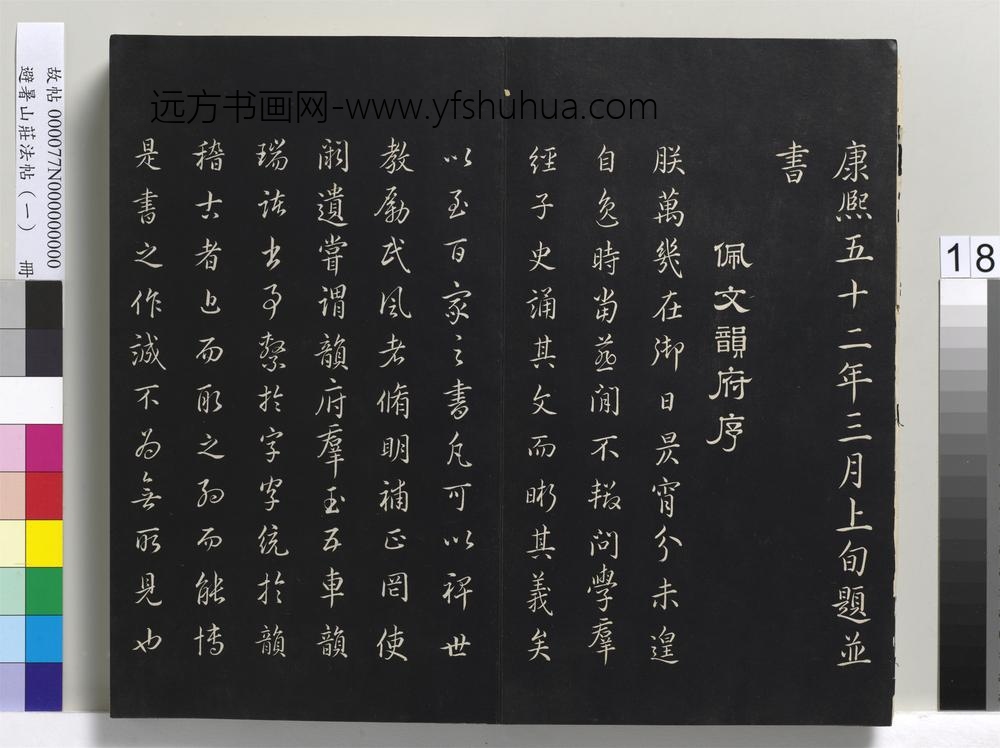 康熙五十二年三月上旬題並
書
佩文韻府序
朕萬幾在御日昃宵分未遑
自逸時當燕閒不輟問學羣
經子史誦其文而晰其義矣
以至百家之書凡可以裨世
教勵民風者脩明補正罔使
闕遺嘗謂韻府羣玉五車韻
瑞諸書事繫於字字統於韻
稽古者近而取之約而能博
是書之作誠不為無所見也
远方书画网-www.yfshuhua.com
故帖 000077N000000000
避暑山莊法帖(一) 冊
18